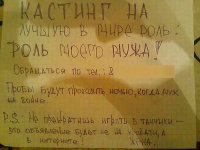 КАСТИНГ НА
ЛУЧШУЮ В МИРЕ РОЛЬ:
РОЛЬ МОЕГО МУЖА!
ОБРАЩАТЬСЯ ПО ТЕЛ.: 8
ПРОБЫ БУДУТ ПРОХОДИТЬ НОЧЬЮ, КОГДА МУЖ
НА ВОЙНЕ.
P.S.: НЕ ПРЕКРАТИШЬ ИГРАТЬ В ТАНЧИКИ -
ЭТО ОБЪЯВЛЕНИЕ БУДЕТ НЕ НА КРОВАТИ, А
В ИНТЕРНЕТЕ!
ЖЕНА.